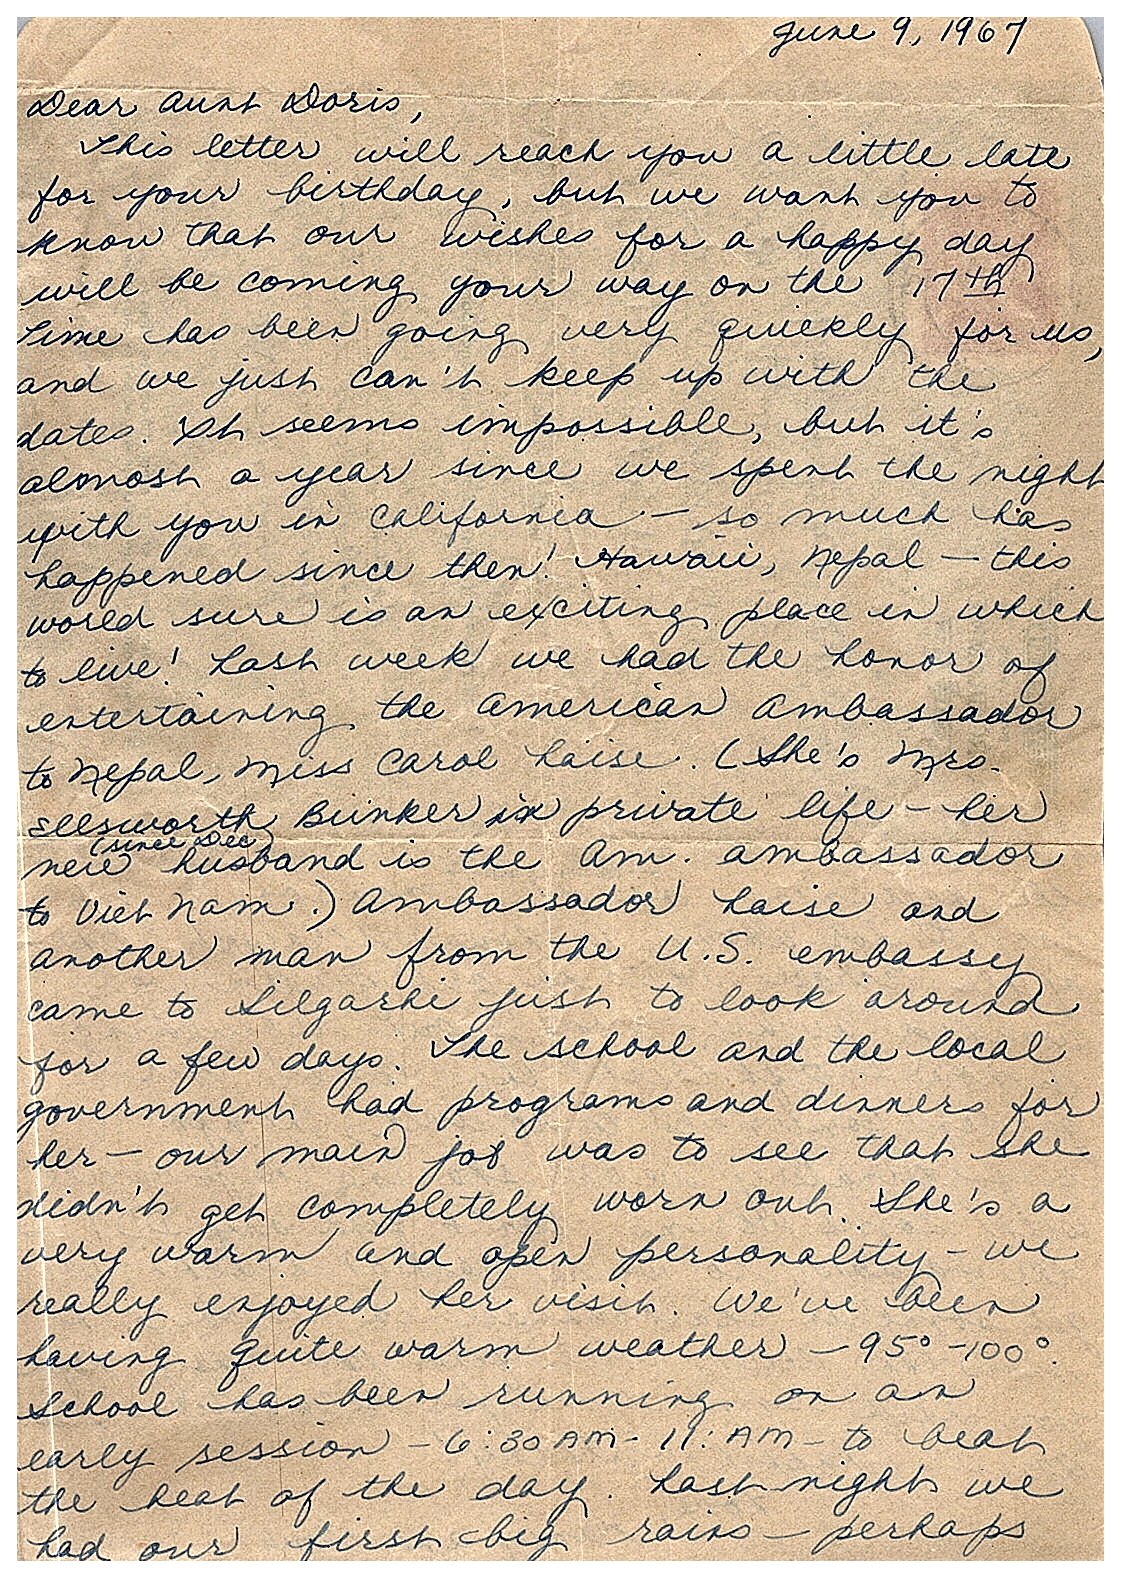 June 9, 1967
Dear Aunt Doris,
This letter will reach you a little late
for your birthday, but we want you to
know that our wishes for a happy day
will be coming your way on the 17th
Time has been going very quickly for us,
and we just can't keep up with the
dates. It seems impossible, but it's
almost a year since we spent the night
with you in California - so much has
happened since then! Hawaii, Nepal - this
world sure is an exciting place in which
to live! Last week we had the honor of
entertaining the American Ambassador
to Nepal, Miss Carol Laise. (She's Mrs.
Ellsworth Bunker in private life - her
(since Dec)
new husband is the Am. ambassador
to Viet Nam.) Ambassador Laise and
another man from the U.S. embassy
came to Silgarhi just to look around
for a few days. The school and the local
government had programs and dinners for
her - our main job was to see that she
didn't get completely worn out. She's a
very warm and open personality - we
really enjoyed her visit. We've been
having quite warm weather - 95° - 100°.
School has been running on an
early session - 6:30 AM - 11: AM - to beat
the heat of the day. Last night we
had our first big rains - perhaps